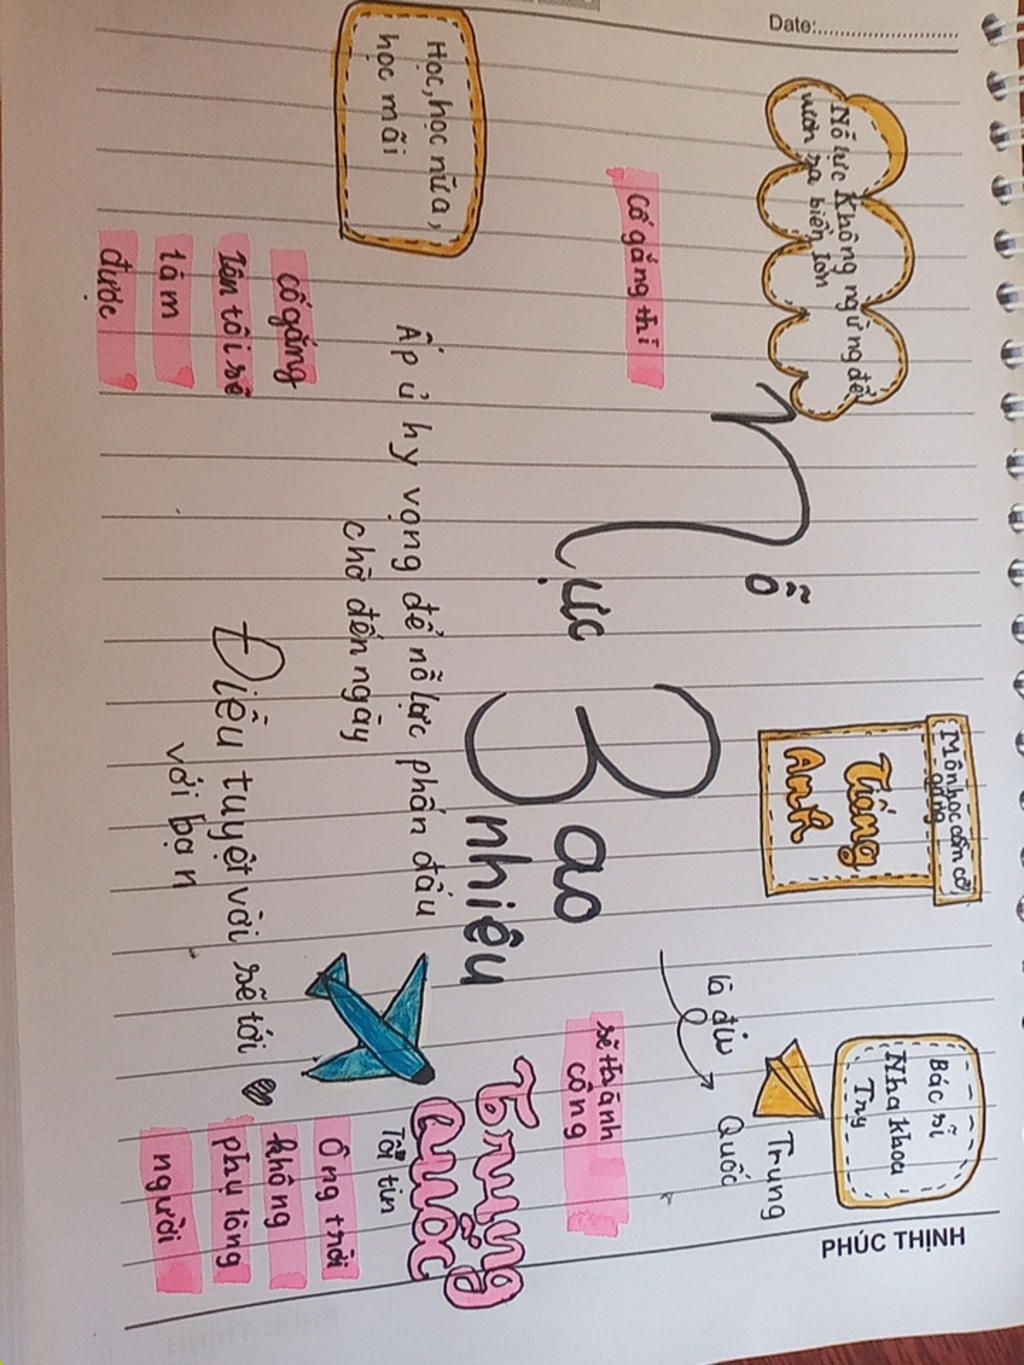 Date:
Nỗ lực không ngừng để
vươn ra biển lớn
Môn học cần cố
gắng
Tiếng
Anh
Bác sĩ
Nha khoa
Try
PHÚC THỊNH
Nỗ
lực
Bao
nhiêu
là đủ
Trung
Quốc
cố gắng thì
sẽ thành
công
Học, học nữa,
học mãi
Ấp ủ hy vọng để nỗ lực phấn đấu
chờ đến ngày
Điều tuyệt vời sẽ tới
với bạn
Trung
Quốc
cố gắng
lên tôi sẽ
làm
được
Tôi tin
Ông trời
không
phụ lòng
người